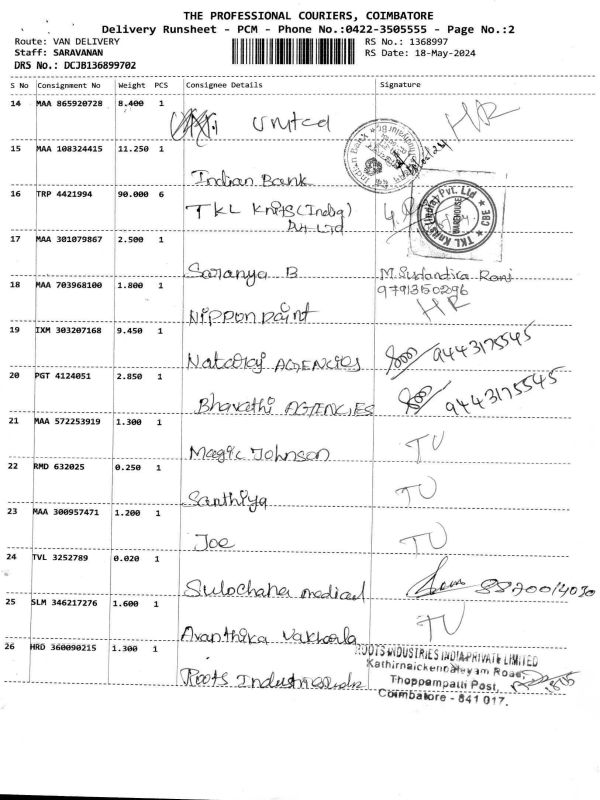 THE PROFESSIONAL COURIERS, COIMBATORE
Delivery Runsheet - PCM - Phone No.:0422-3505555 - Page No.:2
Route: VAN DELIVERY RS No.: 1368997
Staff: SARAVANAN RS Date: 18-May-2024
DRS No.: DCJB136899702
S No Consignment No Weight PCS Consignee Details Signature
14 MAA 865920728 8.400 1
United HR
15 MAA 108324415 11.250 1
Indian Bank
16 TRP 4421994 90.000 6
TKL Knits (India)
Pvt Ltd
TKL Knits (India) Pvt. Ltd WAREHOUSE CBE
17 MAA 301079867 2.500 1
Saranya B M. Sudandira Rani
9791350296
18 MAA 703968100 1.800 1
Nippon paint HR
19 IXM 303207168 9.450 1
AGENCIES 9443175545
20 PGT 4124051 2.850 1
Bharathi AGENCIES 9443175545
21 MAA 572253919 1.300 1
Magic Johnson TU
22 RMD 632025 0.250 1
Santhiya TU
23 MAA 300957471 1.200 1
Joe TU
24 TVL 3252789 0.020 1
Sulochana medical
25 SLM 346217276 1.600 1
Avanthika TU
26 HRD 360090215 1.300 1
Roots
ROOTS INDUSTRIES INDIA PRIVATE LIMITED
Kathirnaickenpalayam Road,
Thoppampatti Post,
Coimbatore - 641 017.